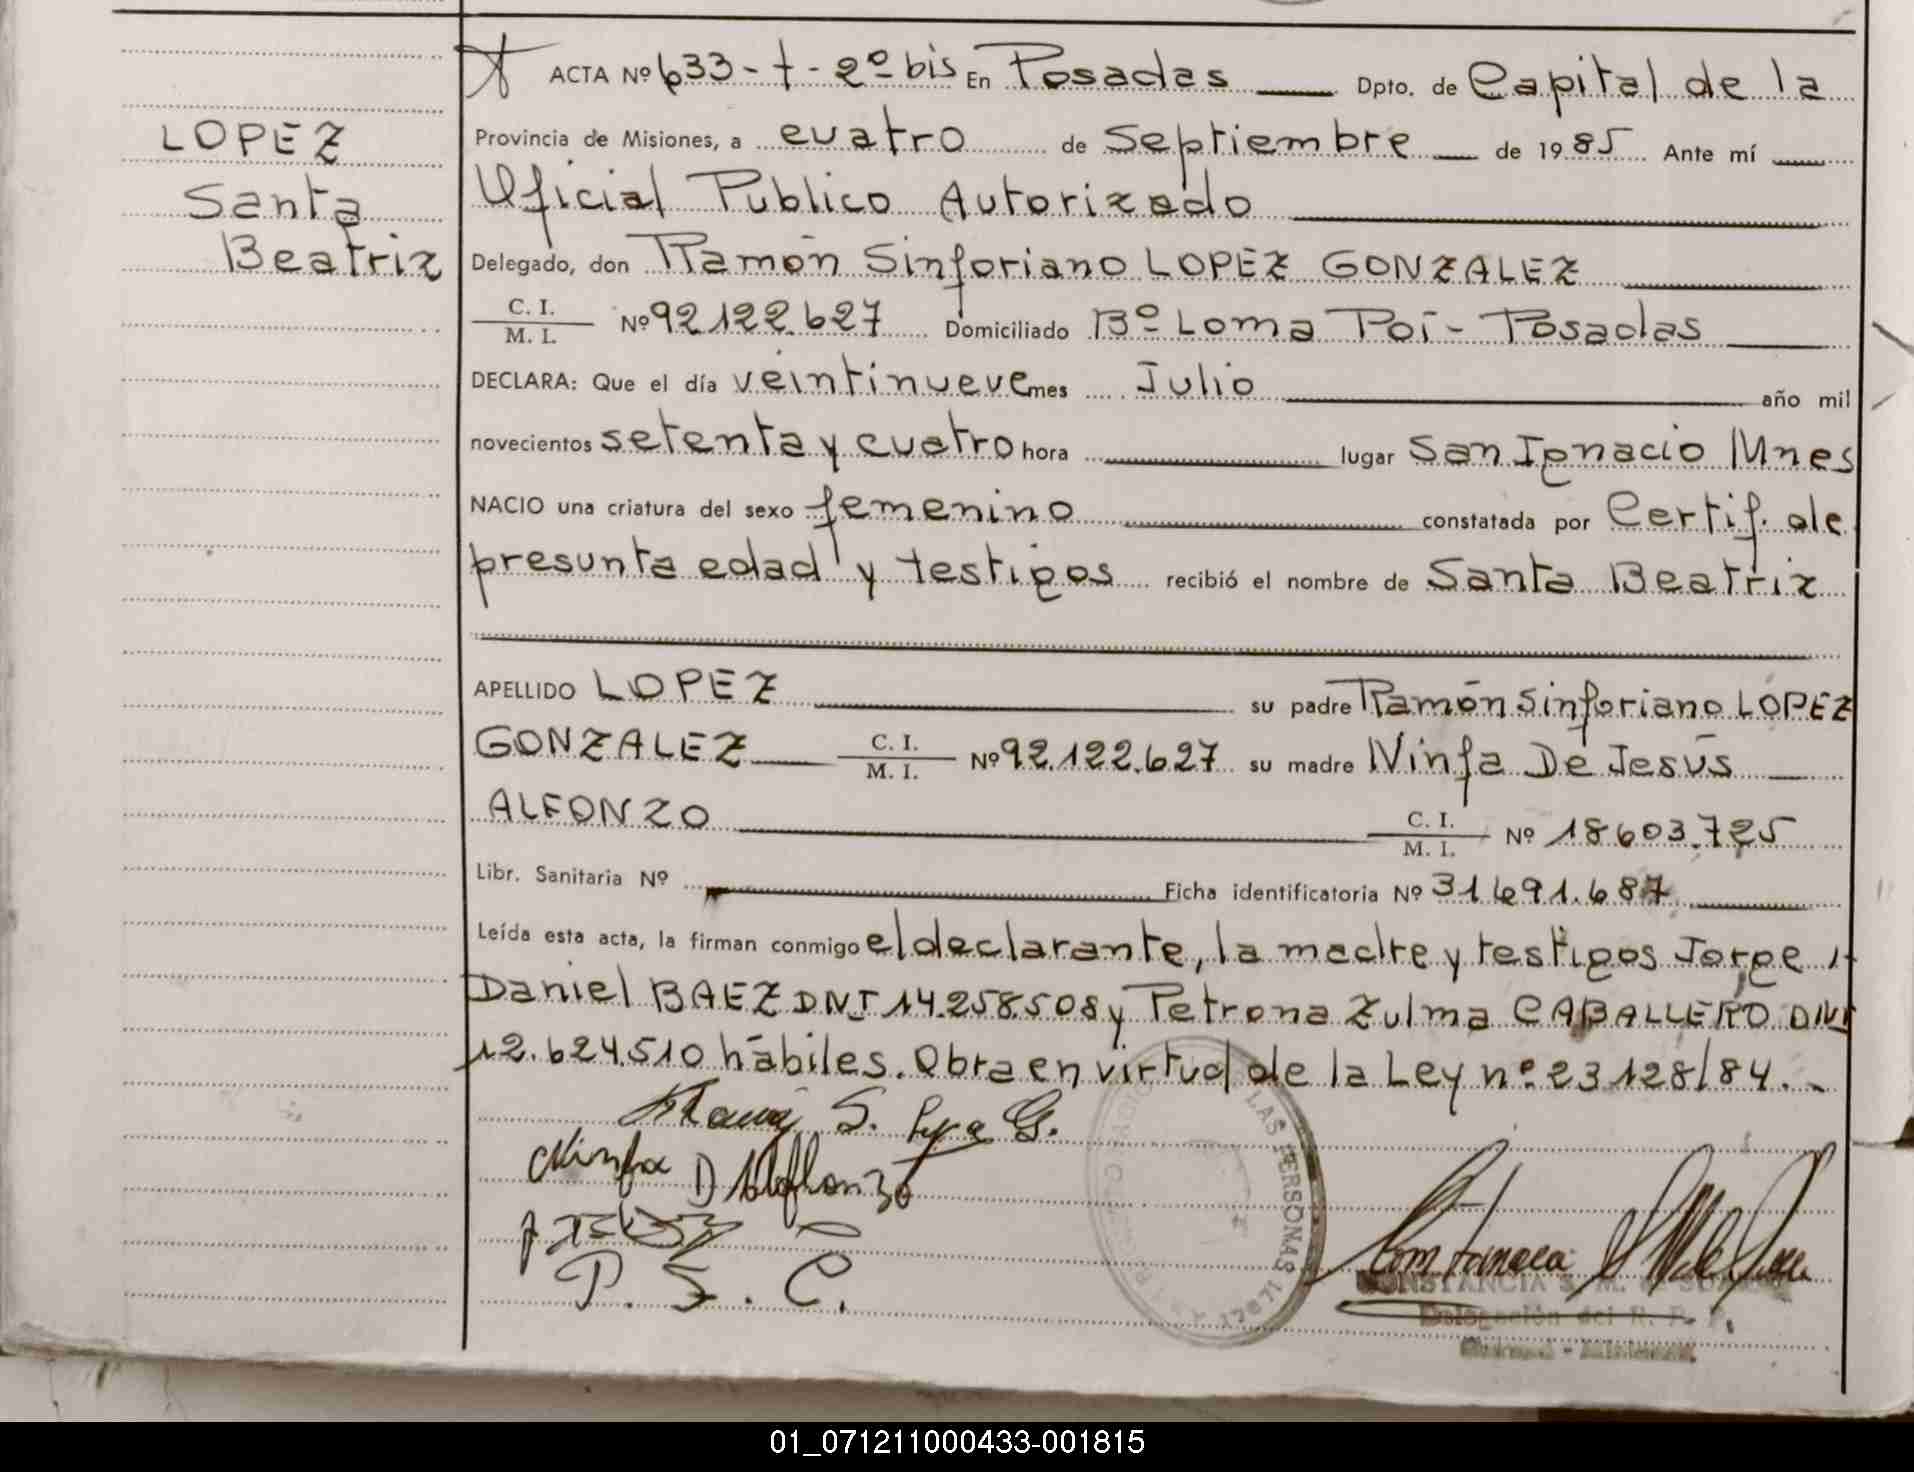 LOPEZ
Santa
Beatriz
ACTA Nº 633-t-2º bis En Posadas Dpto. de Capital de la
Provincia de Misiones, a cuatro de Septiembre de 1985 Ante mí
Oficial Publico Autorizado
Delegado, don Ramón Sinforiano LOPEZ GONZALEZ
C. I.
M. I. Nº 92.122.627 Domiciliado Bº Loma Poi - Posadas
DECLARA: Que el día veintinueve mes Julio año mil
novecientos setenta y cuatro hora lugar San Ignacio Mnes
NACIO una criatura del sexo femenino constatada por Certif. de
presunta edad y testigos recibió el nombre de Santa Beatriz
APELLIDO LOPEZ su padre Ramón Sinforiano LOPEZ
GONZALEZ C. I. M. I. Nº 92.122.627 su madre Ninfa De Jesús
ALFONZO C. I. M. I. Nº 18603.725
Libr. Sanitaria Nº Ficha identificatoria Nº 31.691.687
Leída esta acta, la firman conmigo el declarante, la madre y testigos Jorge
Daniel BAEZ DNI 14.258.508 y Petrona Zulma CABALLERO DNI
12.624.510 hábiles. Obra en virtud de la Ley nº 23128/84.
S. G.
Ninfa D
P. C.
LAS PERSONAS
CONSTANCIA S. M.
Delegación del R. P.
01_071211000433-001815